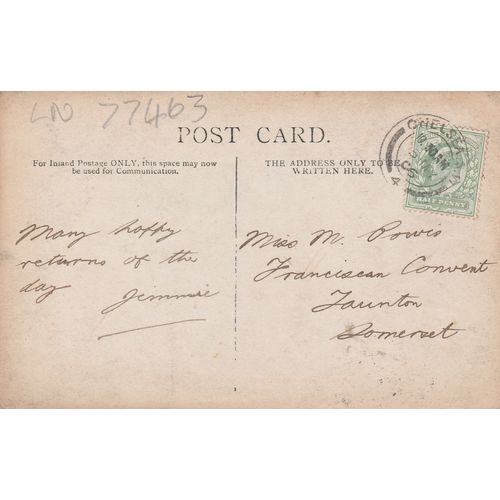 LN 77463
POST CARD.
For Inland Postage ONLY, this space may now
be used for Communication.
THE ADDRESS ONLY TO BE
WRITTEN HERE.
CHELSEA
HALF PENNY
Many happy
returns of the
day Jimmie
Miss M. Powis
Franciscan Convent
Taunton
Somerset